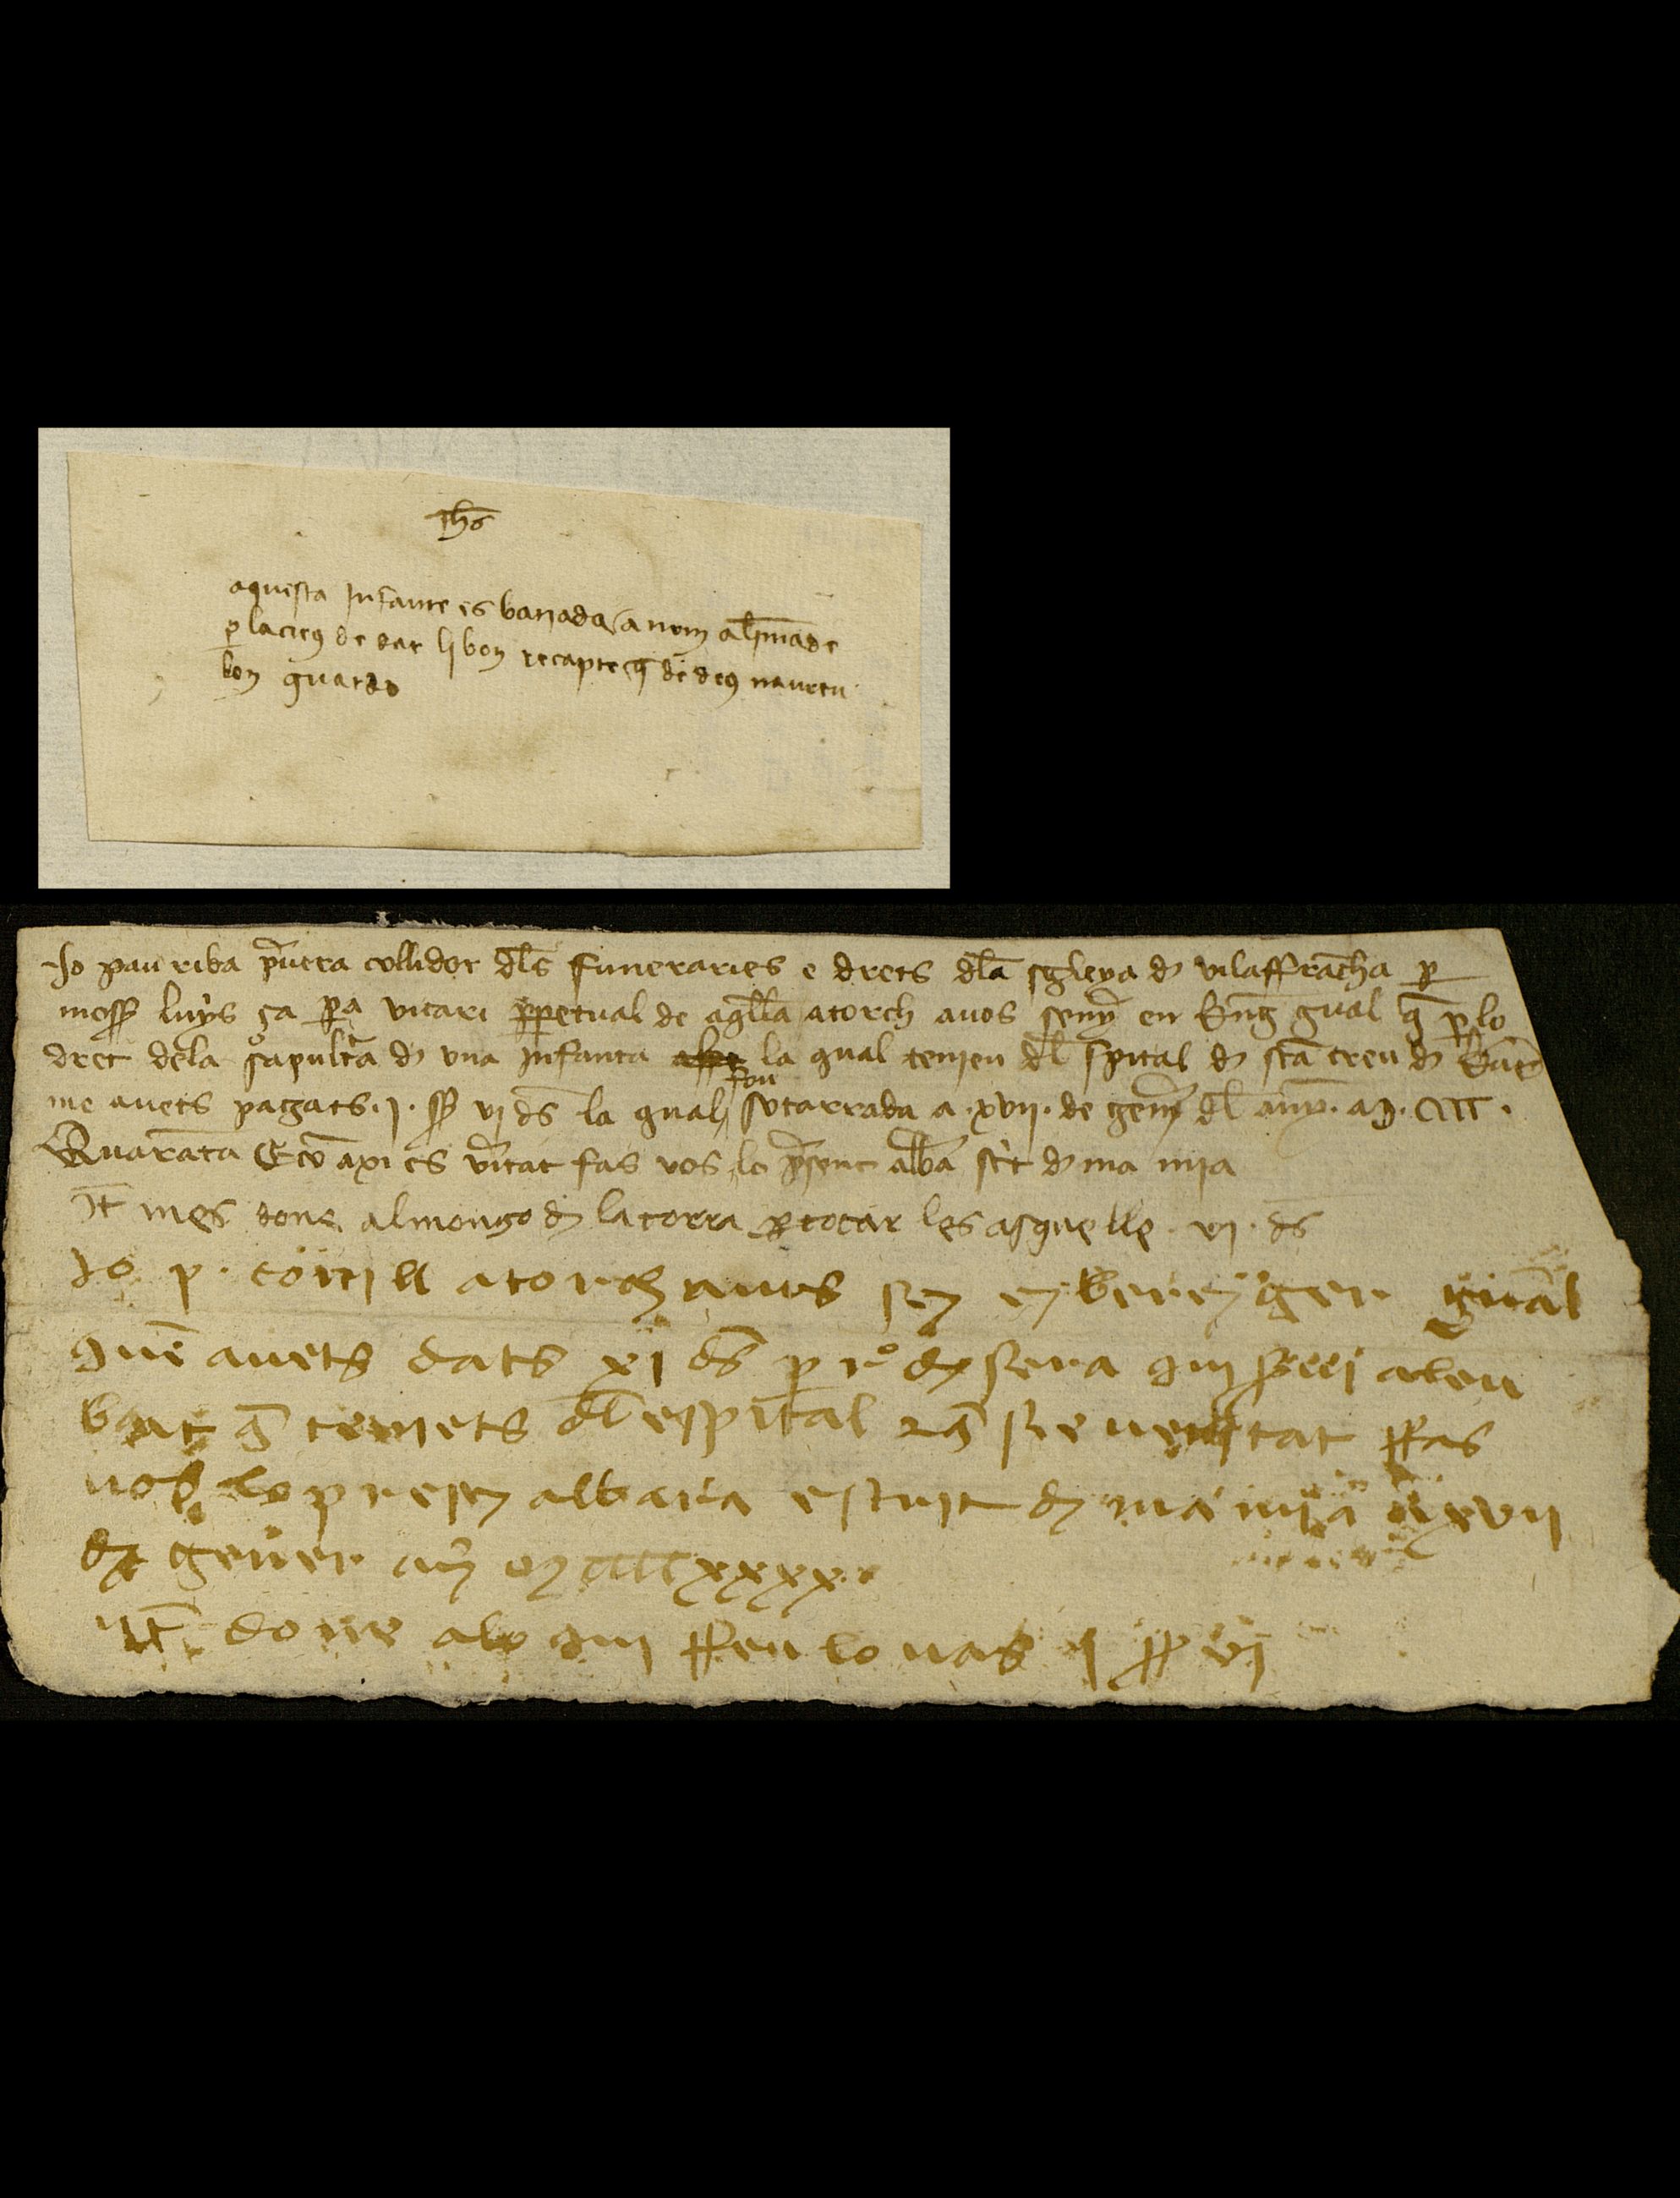 Jhs
aquesta Infante es banada a nom alimāde
placieus de dar li bon recapte q̄ de deus naureu
bon guardo
Jo pau riba p̄uera collidor dl̄s funeraries e drets dl̄a sgleya d̄ vilaffrācha p̱
moss̄ luys ça pr̄a vicari p̱petual de aq̄lla atorch auos senȳ en b̄nḡ gual q̄ p̱ lo
dret dela sapultr̄a d̄ vna Infanta la qual tenieu dl̄ spital d̄ sc̄ta creu d̄ bar̄
me auets pagats .j. ss̄ vj ds̄ la qual fou sotarrada a .xvij. de gener̄ dl̄ any. M. CCCC.
Quarāta E cō axi es v̄itat fas vos lo p̄sent albā sc̄it d̄ ma mia
It̄ mes done al mongo d̄ la torra p̱ tocar les asquelle . vj . ds̄
Jo p. atorch auos sen en berenger gual
que auets dats xj ds̄ p̱ de sera qui seruj al
bat q̄ teniets dl̄ espital ueritat ffas
uos lo presen albara escrit d̄ ma mia a xvij
de gener any M CCCC xxxx
it̄ done alo qui ffeu lo uas j ss̄ vj